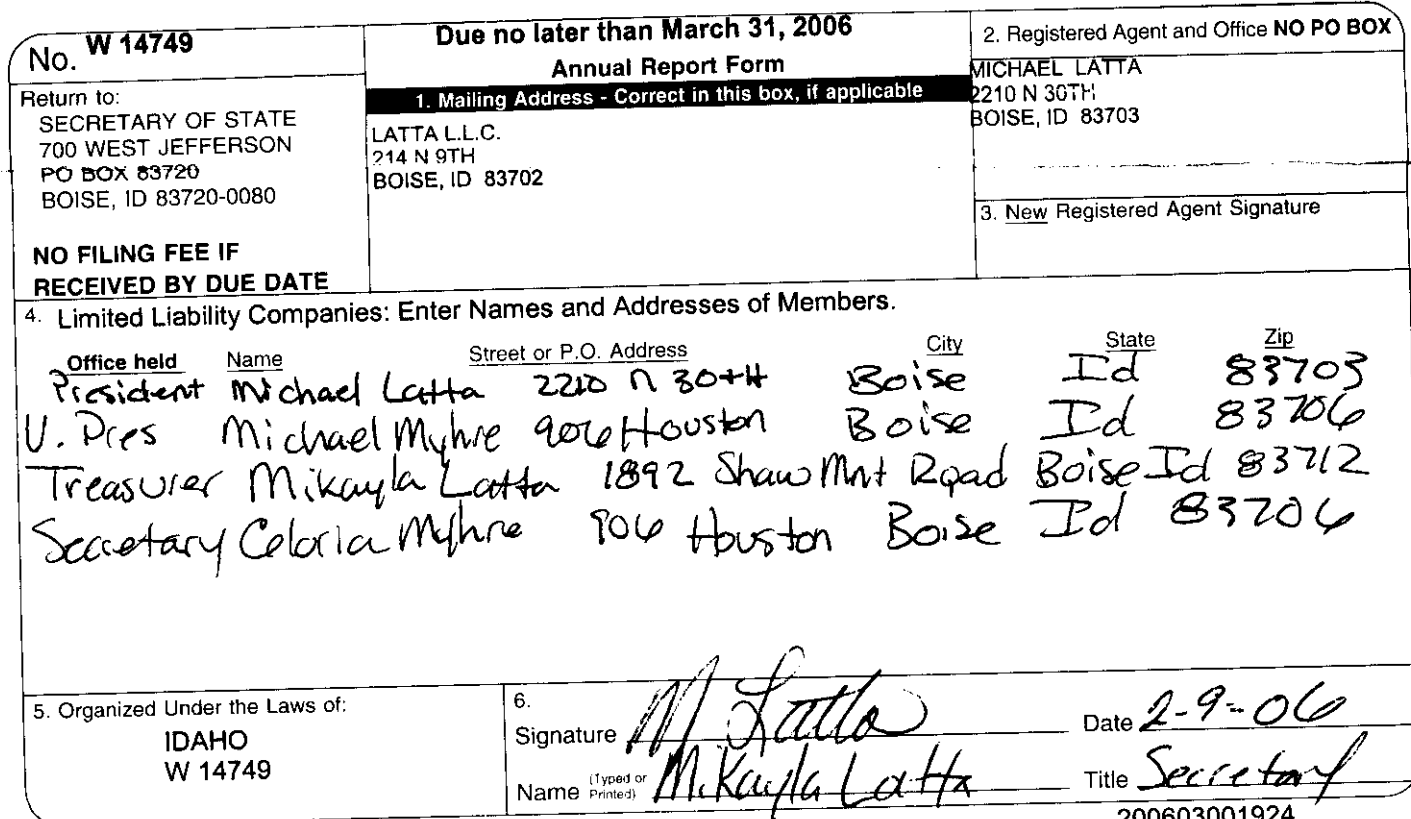 No. W 14749
Return to:
SECRETARY OF STATE
700 WEST JEFFERSON
PO BOX 83720
BOISE, ID 83720-0080
NO FILING FEE IF
RECEIVED BY DUE DATE
Due no later than March 31, 2006
Annual Report Form
1. Mailing Address - Correct in this box, if applicable
LATTA L.L.C.
214 N 9TH
BOISE, ID 83702
2. Registered Agent and Office NO PO BOX
MICHAEL LATTA
2210 N 30TH
BOISE, ID 83703
3. New Registered Agent Signature
4. Limited Liability Companies: Enter Names and Addresses of Members.
Office held Name Street or P.O. Address City State Zip
President Michael Latta 2210 N 30tH Boise Id 83703
V. Pres Michael Myhre 906 Houston Boise Id 83706
Treasurer Mikayla Latta 1892 Shaw Mnt Road Boise Id 83712
Secretary Celoria Myhre 906 Houston Boise Id 83706
5. Organized Under the Laws of:
IDAHO
W 14749
6.
Signature M Latta Date 2-9-06
Name (Typed or Printed) Mikayla Latta Title Secretary
200603001924